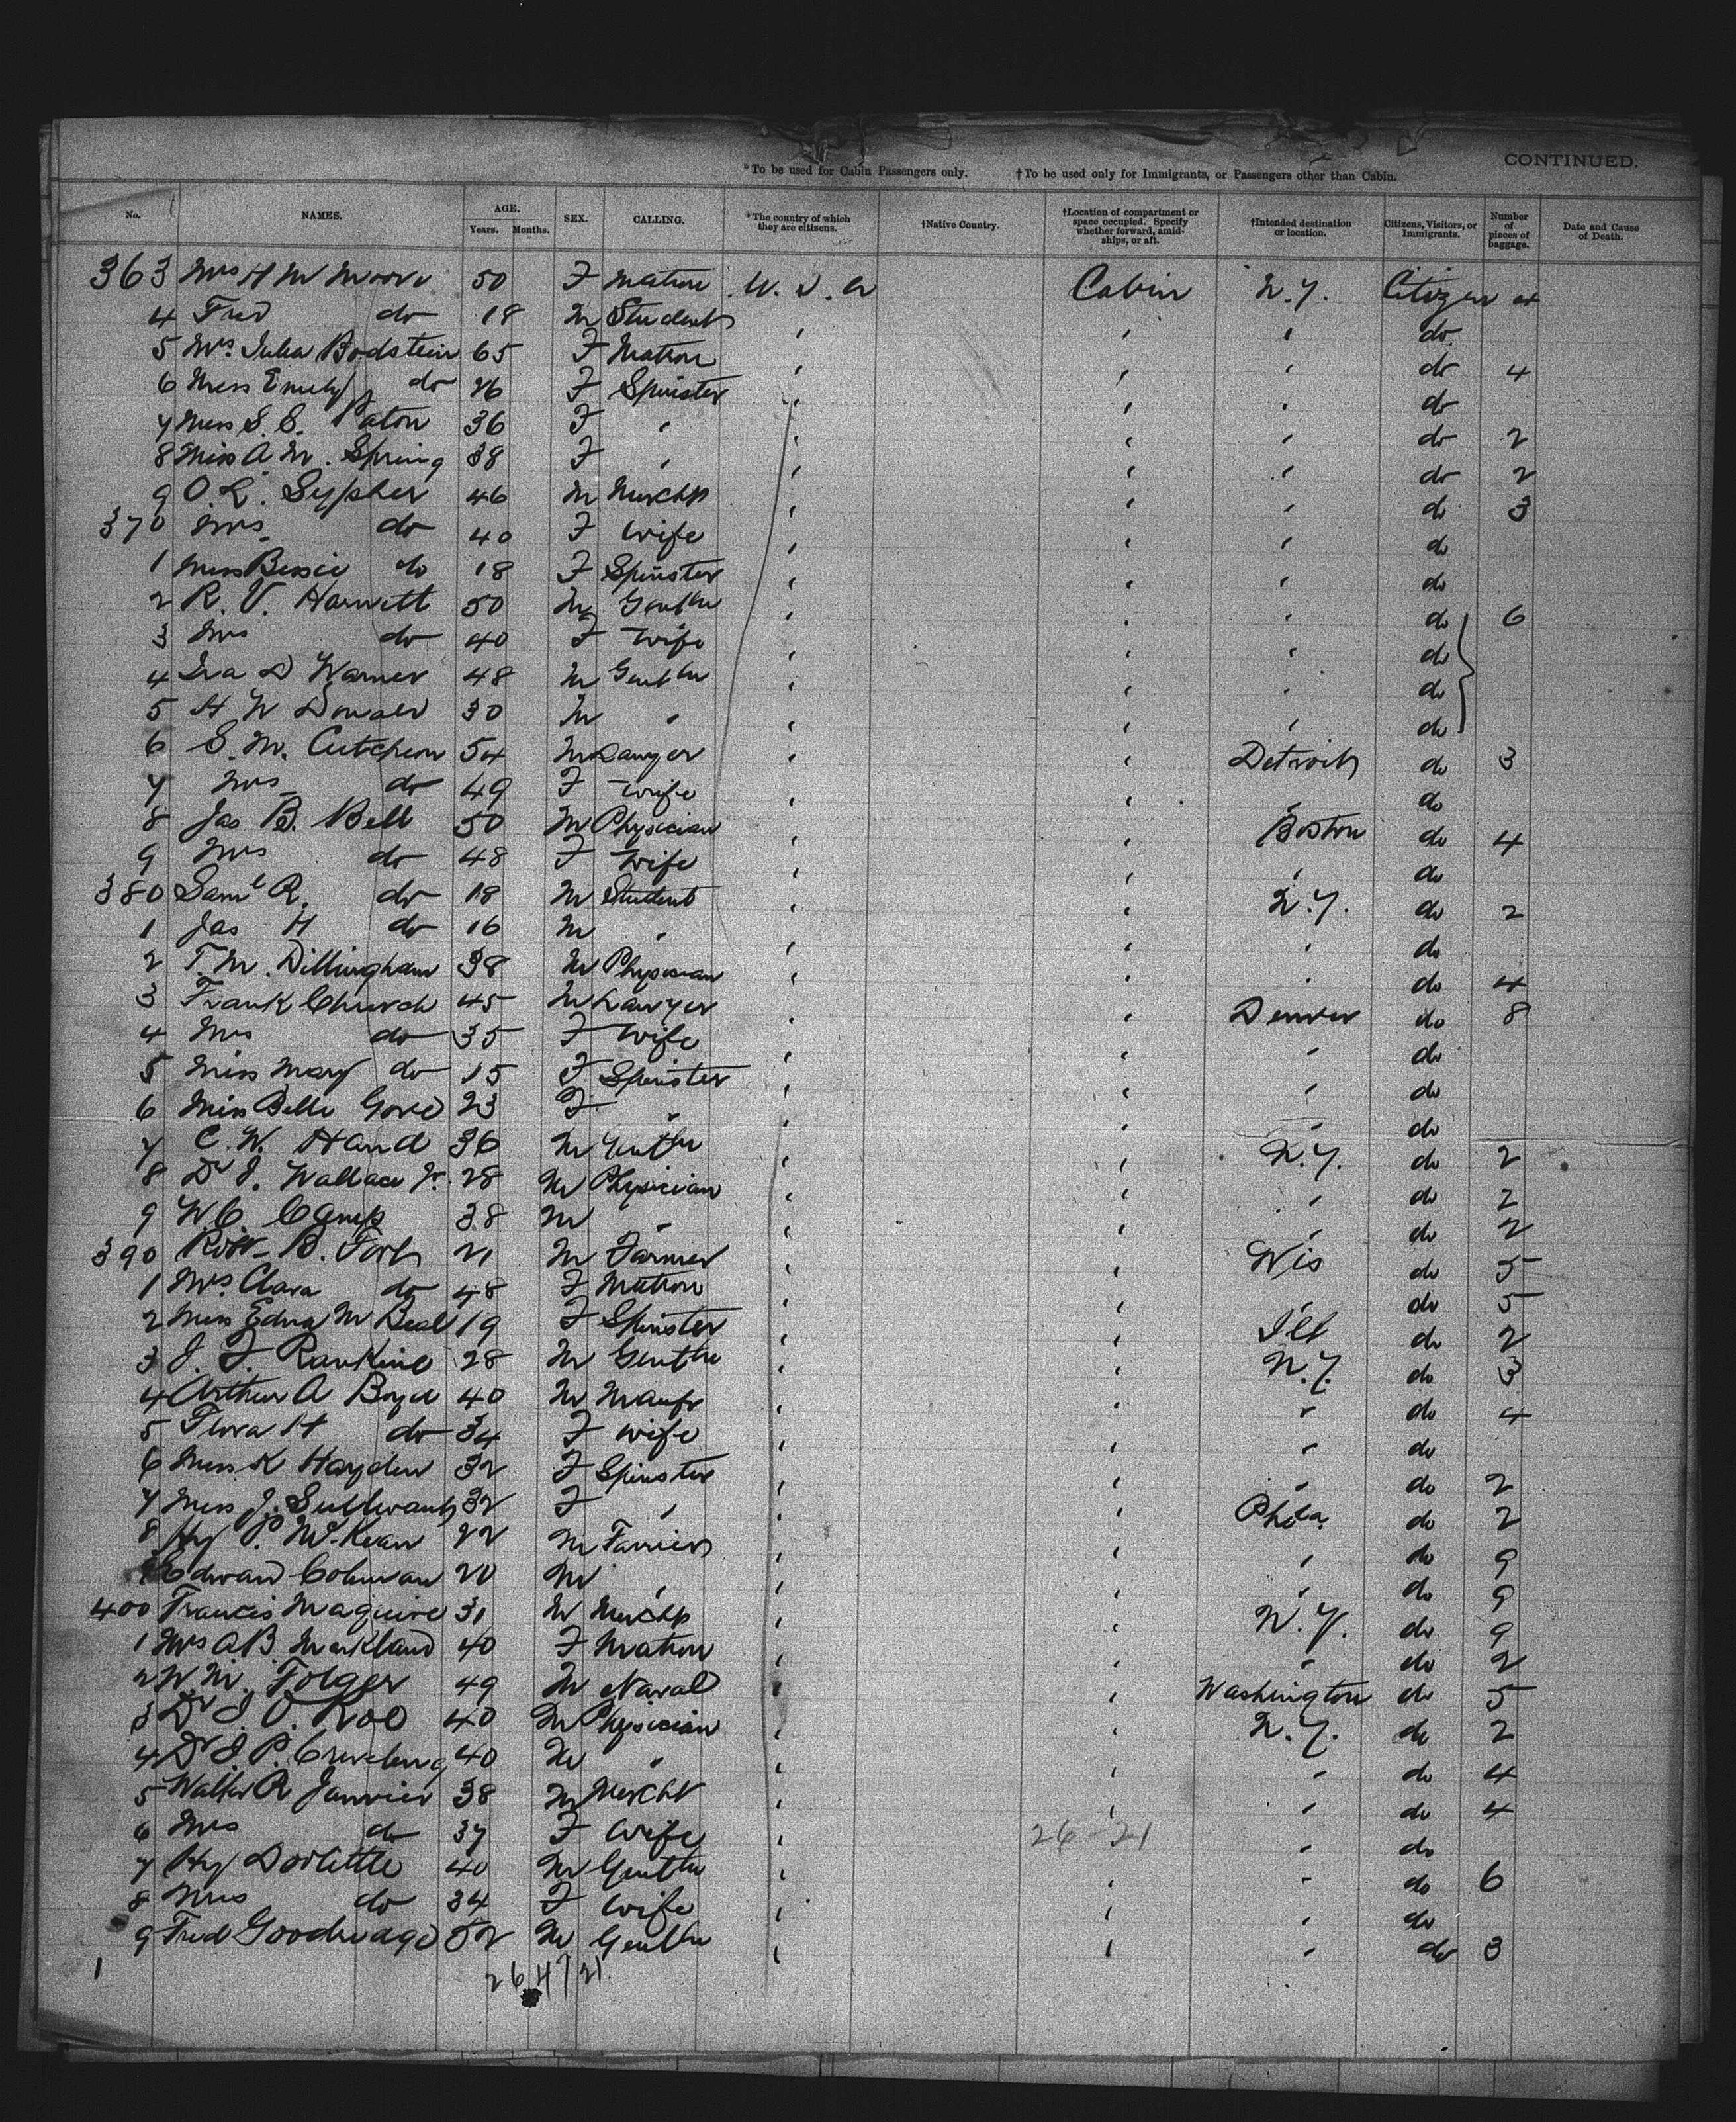 CONTINUED.
*To be used for Cabin Passengers only. †To be used only for Immigrants, or Passengers other than Cabin.
No. NAMES. AGE. Years. Months. SEX. CALLING. *The country of which they are citizens. †Native Country. †Location of compartment or space occupied. Specify whether forward, amid-ships, or aft. †Intended destination or location. Citizens, Visitors, or Immigrants. Number of pieces of baggage. Date and Cause of Death.
363 Mrs H M Moore 50 F Matron U. S. A Cabin N.Y. Citizen 4
4 Fred do 18 M Student ' ' ' do
5 Mrs. Julia Bodstein 65 F Matron ' ' ' do 4
6 Miss Emily do 26 F Spinster ' ' ' do
7 Miss S. E. Paton 36 F " ' ' ' do 2
8 Miss A. M. Spring 38 F " ' ' ' do 2
9 O. L. Sypher 46 M Mercht ' ' ' do 3
370 Mrs do 40 F Wife ' ' ' do
1 Miss Bessie do 18 F Spinster ' ' ' do
2 R. V. Harnett 50 M Gentln ' ' ' do 6
3 Mrs do 40 F Wife ' ' ' do
4 Ira D Warner 48 M Gentln ' ' ' do
5 H W Donald 30 M " ' ' ' do
6 S. M. Cutcheon 54 M Lawyer ' ' Detroit do 3
7 Mrs do 49 F Wife ' ' ' do
8 Jas B. Bell 50 M Physician ' ' Boston do 4
9 Mrs do 48 F Wife ' ' ' do
380 Saml R. do 18 M Student ' ' N.Y. do 2
1 Jas H do 16 M " ' ' ' do
2 T. M. Dillingham 38 M Physician ' ' ' do 4
3 Frank Church 45 M Lawyer ' ' Denver do 8
4 Mrs do 35 F Wife ' ' ' do
5 Miss Mary do 15 F Spinster ' ' ' do
6 Miss Belle Gove 23 F " ' ' ' do
7 C. W. Hand 36 M Gentln ' ' N.Y. do 2
8 Dr J. Wallace Jr. 28 M Physician ' ' ' do 2
9 W. C. Camp 38 M " ' ' ' do 2
390 Robt B. 21 M Farmer ' ' Wis do 5
1 Mrs. Clara do 48 F Matron ' ' ' do 5
2 Miss Edna M Beal 19 F Spinster ' ' Ill do 2
3 J. F. Rankine 28 M Gentln ' ' N.Y. do 3
4 Arthur A Boyd 40 M Manfr ' ' ' do 4
5 Flora H do 34 F Wife ' ' ' do
6 Miss K Hayden 32 F Spinster ' ' ' do 2
7 Miss J. 32 F " ' ' Phila. do 2
8 Hy P. McKean 22 M ' ' ' do 9
9 Edward Coleman 20 M " ' ' ' do 9
400 Francis Maguire 31 M Mercht ' ' N.Y. do 9
1 Mrs A. B. Markland 40 F Matron ' ' ' do 2
2 W. M. Folger 49 M Naval ' ' Washington do 5
3 Dr J. O. Roe 40 M Physician ' ' N.Y. do 2
4 Dr J. P. 40 M " ' ' ' do 4
5 Walter R Janvier 38 M Mercht ' ' ' do 4
6 Mrs do 37 F Wife ' ' ' do
26-21
7 Hy Doolittle 40 M Gentln ' ' ' do 6
8 Mrs do 34 F Wife ' ' ' do
9 Fred Goodridge 52 M Gentln ' ' ' do 3
1 26 47 21